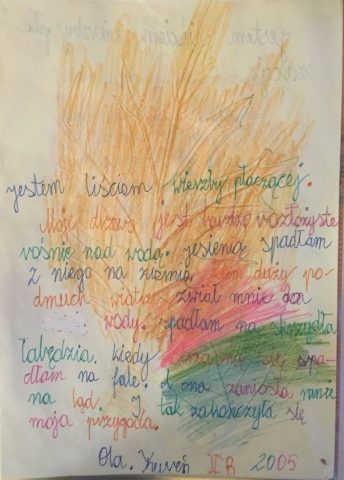 jestem liściem wierzby płaczącej.
Moje drzewo jest bardzo rozłożyste
rośnie nad wodą. jesienią spadłam
z niego na ziemię. duży po-
dmuch wiatru zwiał mnie do
wody. spadłam na skrzydła
łabędzia. kiedy się spa-
dłam na fale. a ona zaniosła mnie
na ląd. I tak zakończyła się
moja przygoda.
Ola. II B 2005